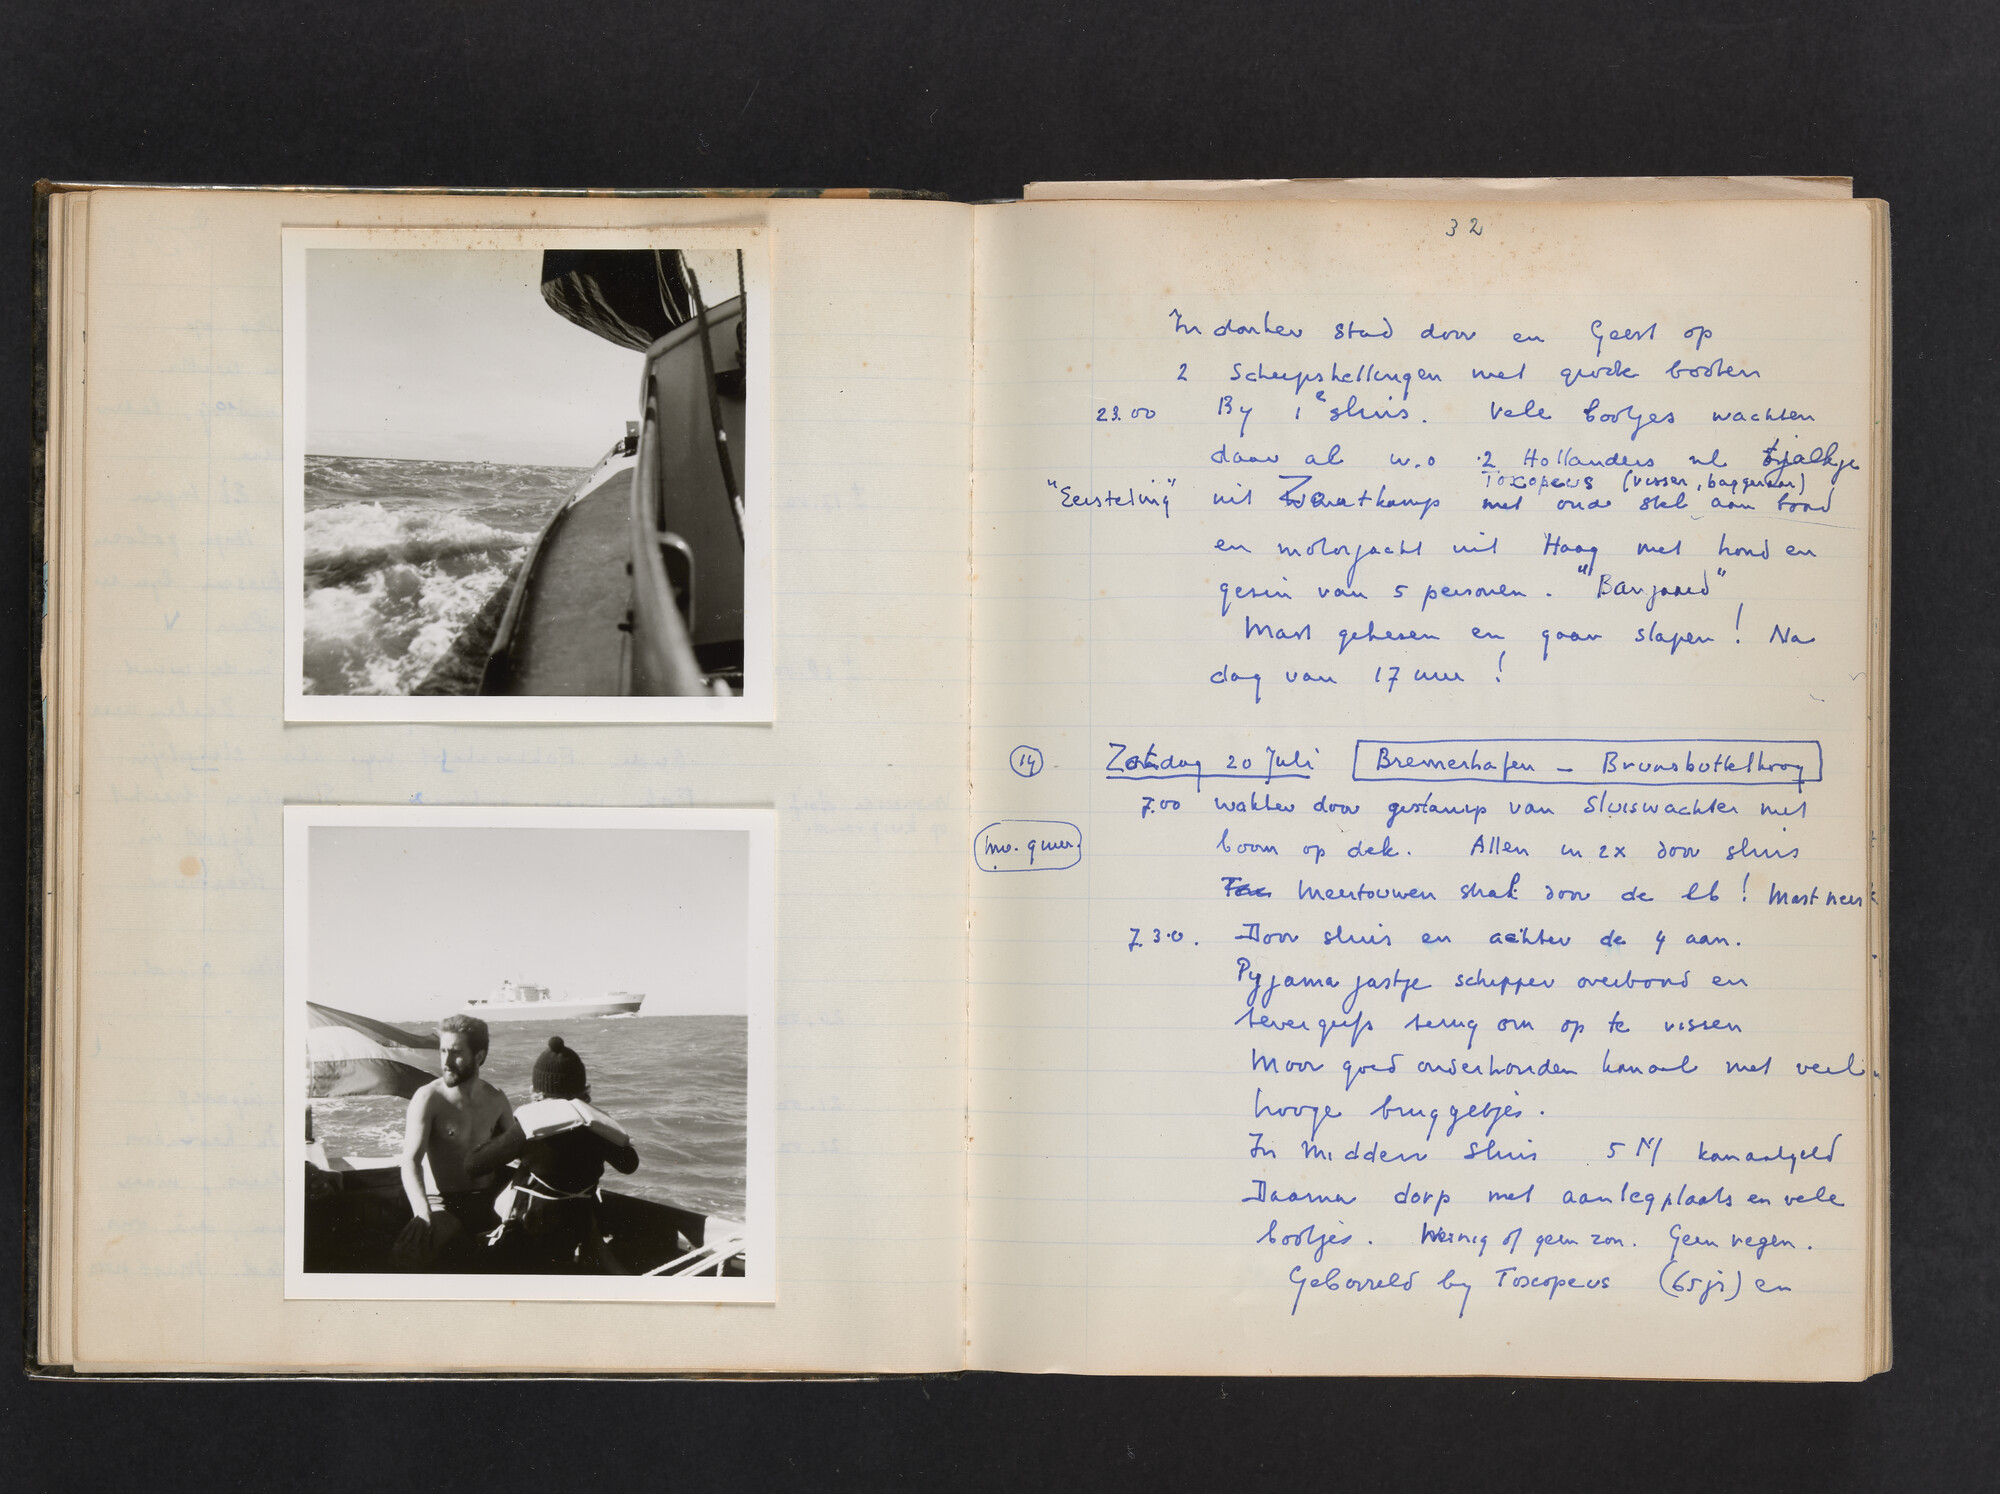 32
In donker stad door en Geest op
2 Scheepshellingen met grote boten
23.00 By 1e sluis. Vele bootjes wachten
daar al w.o 2 Hollanders nl tjalkje
Toxopeus (visser, baggeraar)
"Eersteling" uit Zwartkamp met oude stel aan boord
en motorjacht uit Haag met hond en
gezin van 5 personen. "Barjoed"
Mast gehesen en gaan slapen! Na
dag van 17 uur!
14 Zaterdag 20 Juli Bremerhafen – Brunsbuttelkoog
7.00 wakker door gestamp van Sluiswachter met
boom op dek. Allen in 2x door sluis
Meertouwen strak door de eb! Mast neer
7.30. Door sluis en achter de 4 aan.
Pyjama jastje schipper overboord en
tevergeefs terug om op te vissen
Mooi goed onderhouden kanaal met veel
hooge bruggetjes.
In Midden Sluis 5 M kanaalgeld
Daarna dorp met aanlegplaats en vele
bootjes. Weinig of geen zon. Geen regen.
Geborreld by Toxopeus (65jr) en